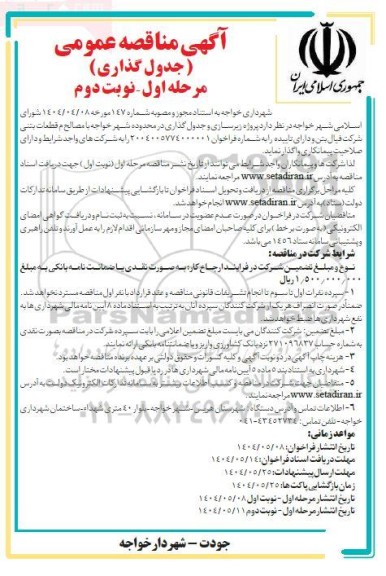 آگهی مناقصه عمومی
(جدول گذاری)
مرحله اول - نوبت دوم
جمهوری اسلامی ایران
شهرداری خواجه به استناد مجوز و مصوبه شماره ۱۴۷ مورخه ۱۴۰۴/۰۴/۰۸ شورای
اسلامی شهر خواجه در نظر دارد پروژه زیرسازی و جدول گذاری در محدوده شهر خواجه با مصالح م قطعات بتنی
شرکت فنال بتن و دارای تاییده را به شماره فراخوان ۲۰۰۴۰۰۵۷۷۴۰۰۰۰۰۱ را به شرکت های واجد شرایط و دارای
صلاحیت پیمانکاری واگذار نماید.
لذا شرکت ها و پیمانکاران واجد شرایط می توانند از تاریخ نشر مناقصه مرحله اول (نوبت اول) جهت دریافت اسناد
مناقصه به آدرس www.setadiran.ir مراجعه نمایند.
کلیه مراحل برگزاری مناقصه از دریافت و تحویل اسناد فراخوان تا بازگشایی پیشنهادات از طریق سامانه تدارکات
دولت (ستاد) به آدرس www.setadiran.ir انجام خواهد شد.
مناقصیان شرکت در فراخوان در صورت عدم عضویت در سامانه، نسبت به ثبت نام و دریافت گواهی امضای
الکترونیکی (به صورت بر خط) برای کلیه صاحبان امضای مجاز و مهر سازمانی اقدام لازم را به عمل آورند و تلفن راهبری
و پشتیبانی سامانه ستاد ۱۴۵۶ می باشد.
شرایط شرکت در مناقصه:
نوع و مبلغ تضمین شرکت در فرایند ارجاع کار: به صورت نقدی یا ضمانت نامه بانکی به مبلغ
۱,۵۰۰,۰۰۰,۰۰۰ ریال
۱- سپرده نفرات اول تا سوم تا انجام تشریفات قانونی مناقصه و عقد قرارداد با نفر اول مناقصه مسترد نخواهد شد.
ضمناً در صورت انصراف هر یک از شرکت کنندگان سپرده آنان به ترتیب به استناد ماده ۸ آیین نامه مالی شهرداری ها به
نفع شهرداری ضبط خواهد شد.
۲- مبلغ تضمین: شرکت کنندگان می بایست مبلغ تضمین اعلامی را بابت سپرده شرکت در مناقصه بصورت نقدی
به شماره حساب ۲۷۱۰۹۶۸۳۷ نزد بانک کشاورزی واریز و یا ضمانتنامه بانکی ارائه نمایند.
۳- هزینه چاپ آگهی در دو نوبت آگهی و کلیه کسورات و حقوق دولتی بر عهده برنده مناقصه خواهد بود.
۴- شهرداری به استناد بند ۵ ماده ۵ آیین نامه مالی شهرداری ها در رد یا قبول پیشنهادات مختار است.
۵- متقاضیان جهت شرکت در مناقصه و کسب اطلاعات بیشتر به سامانه تدارکات الکترونیک دولت به آدرس
www.setadiran.ir مراجعه نمایند.
۶- اطلاعات تماس و آدرس دستگاه: شهرستان هریس- شهر خواجه- بلوار ۴۰ متری شهداء- ساختمان شهرداری
خواجه - تلفن تماس: ۰۴۱-۴۳۴۵۲۷۳۴
مواعد زمانی:
تاریخ انتشار فراخوان: ۱۴۰۴/۰۵/۰۸
مهلت دریافت اسناد فراخوان: ۱۴۰۴/۰۵/۱۴
مهلت ارسال پیشنهادات: ۱۴۰۴/۰۵/۲۵
زمان بازگشایی پاکت ها: ۱۴۰۴/۰۵/۲۵
تاریخ انتشار مرحله اول - نوبت اول ۱۴۰۴/۰۵/۰۸
تاریخ انتشار مرحله اول - نوبت دوم ۱۴۰۴/۰۵/۱۱
جودت - شهردار خواجه